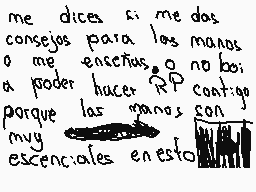 me dices si me das
consejos para las manos
o me enseñas. o no boi
a poder hacer RP contigo
porque las manos son
muy
escenciales en esto